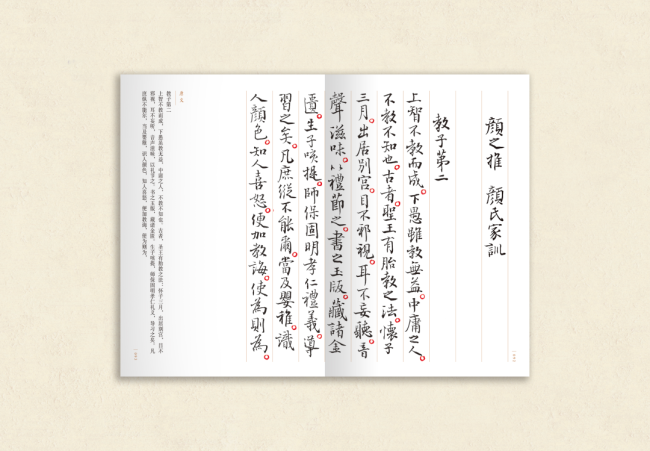 顏之推 顏氏家訓
教子第二
上智不教而成。下愚雖教無益。中庸之人。
不教不知也。古者。聖王有胎教之法。懷子
三月。出居別宮。目不邪視。耳不妄聽。音
聲滋味。以禮節之。書之玉版。藏諸金
匱。生子咳提。師保固明孝仁禮義。導
習之矣。凡庶縱不能爾。當及嬰稚識
人顏色。知人喜怒。便加教誨。使為則為。
教子第二
上智不教而成,下愚虽教无益,中庸之人,不教不知也。古者,圣王有胎教之法:怀子三月,出居别宫,目不
邪视,耳不妄听,音声滋味,以礼节之。书之玉版,藏诸金匮。生子咳提,师保固明孝仁礼义,导习之矣。凡
庶纵不能尔,当及婴稚,识人颜色,知人喜怒,便加教诲,使为则为,